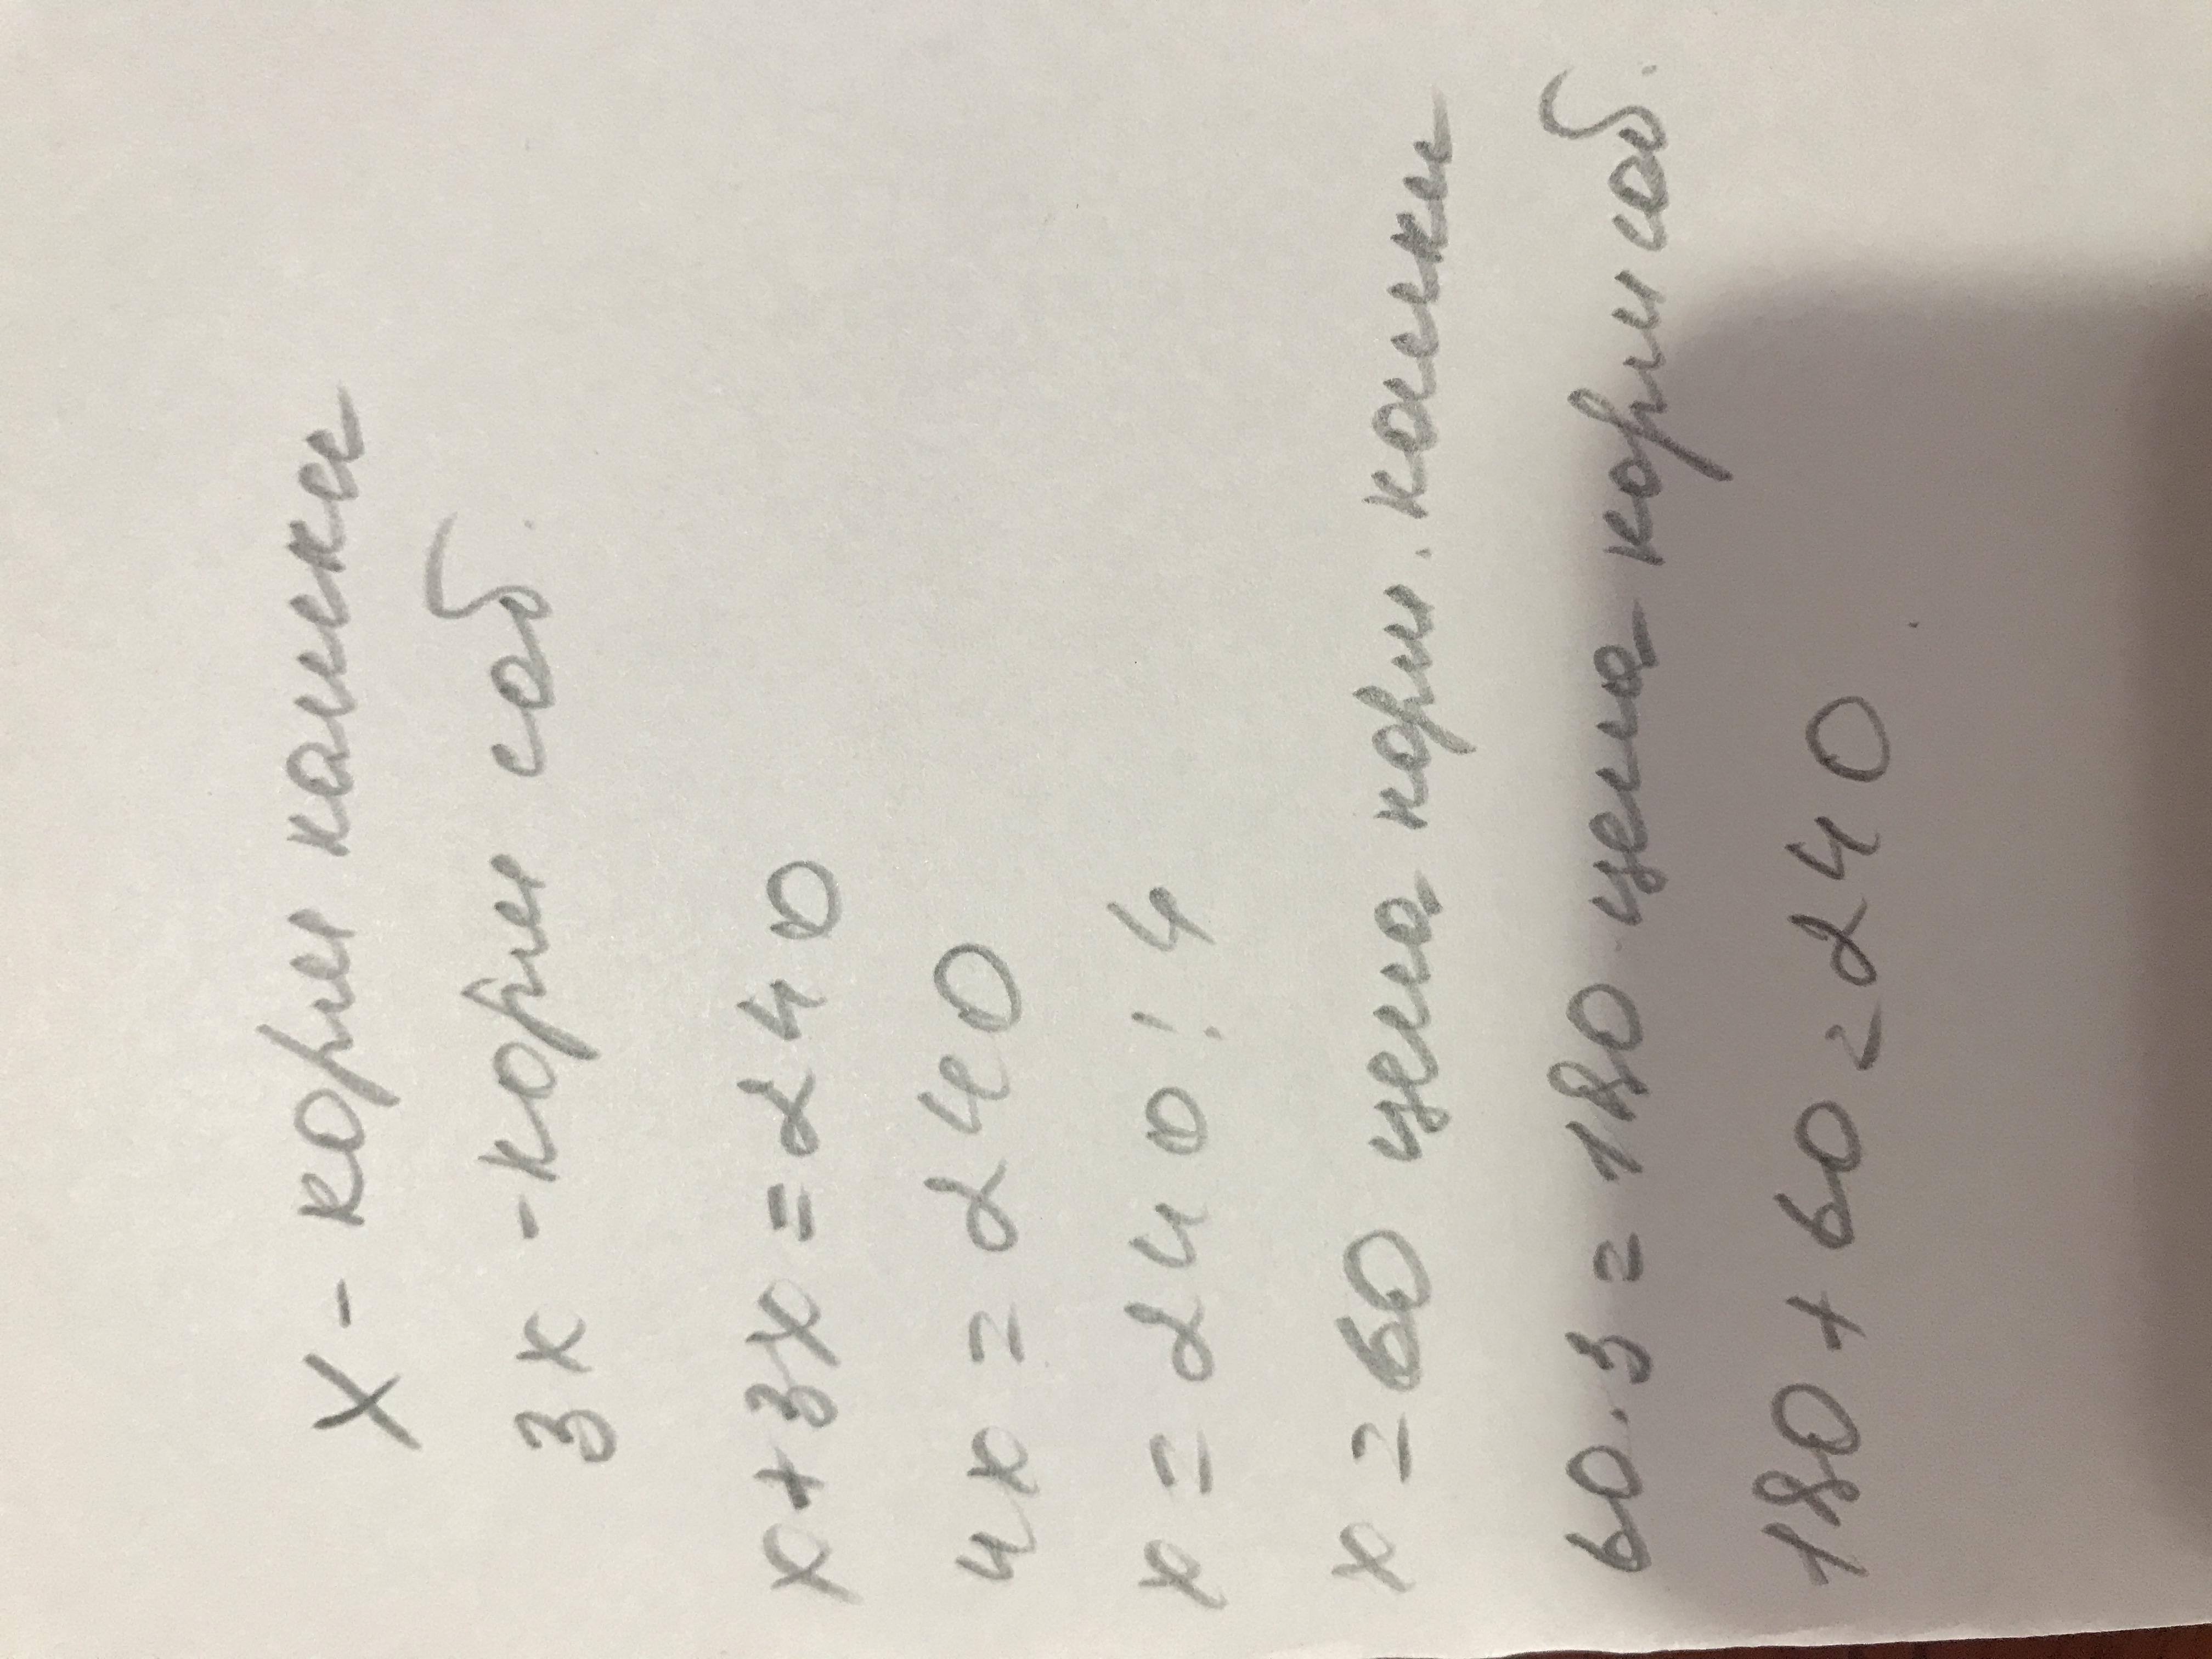 х - корм кошки
3х - корм соб.
х+3х=240
4х=240
х=240:4
х=60 цена корм. кошки
60·3=180 цена корм соб.
180+60=240